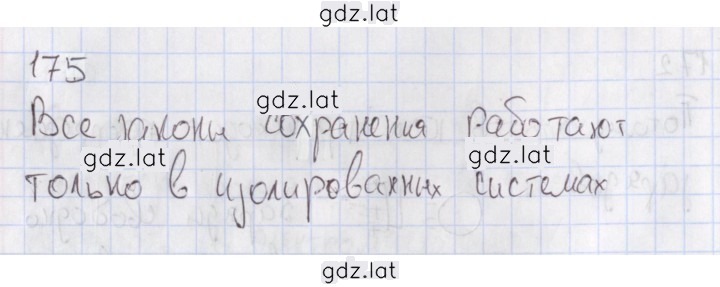 gdz.lat
175
gdz.lat
Все законы сохранения работают
gdz.lat gdz.lat
только в изолированных системах
gdz.lat